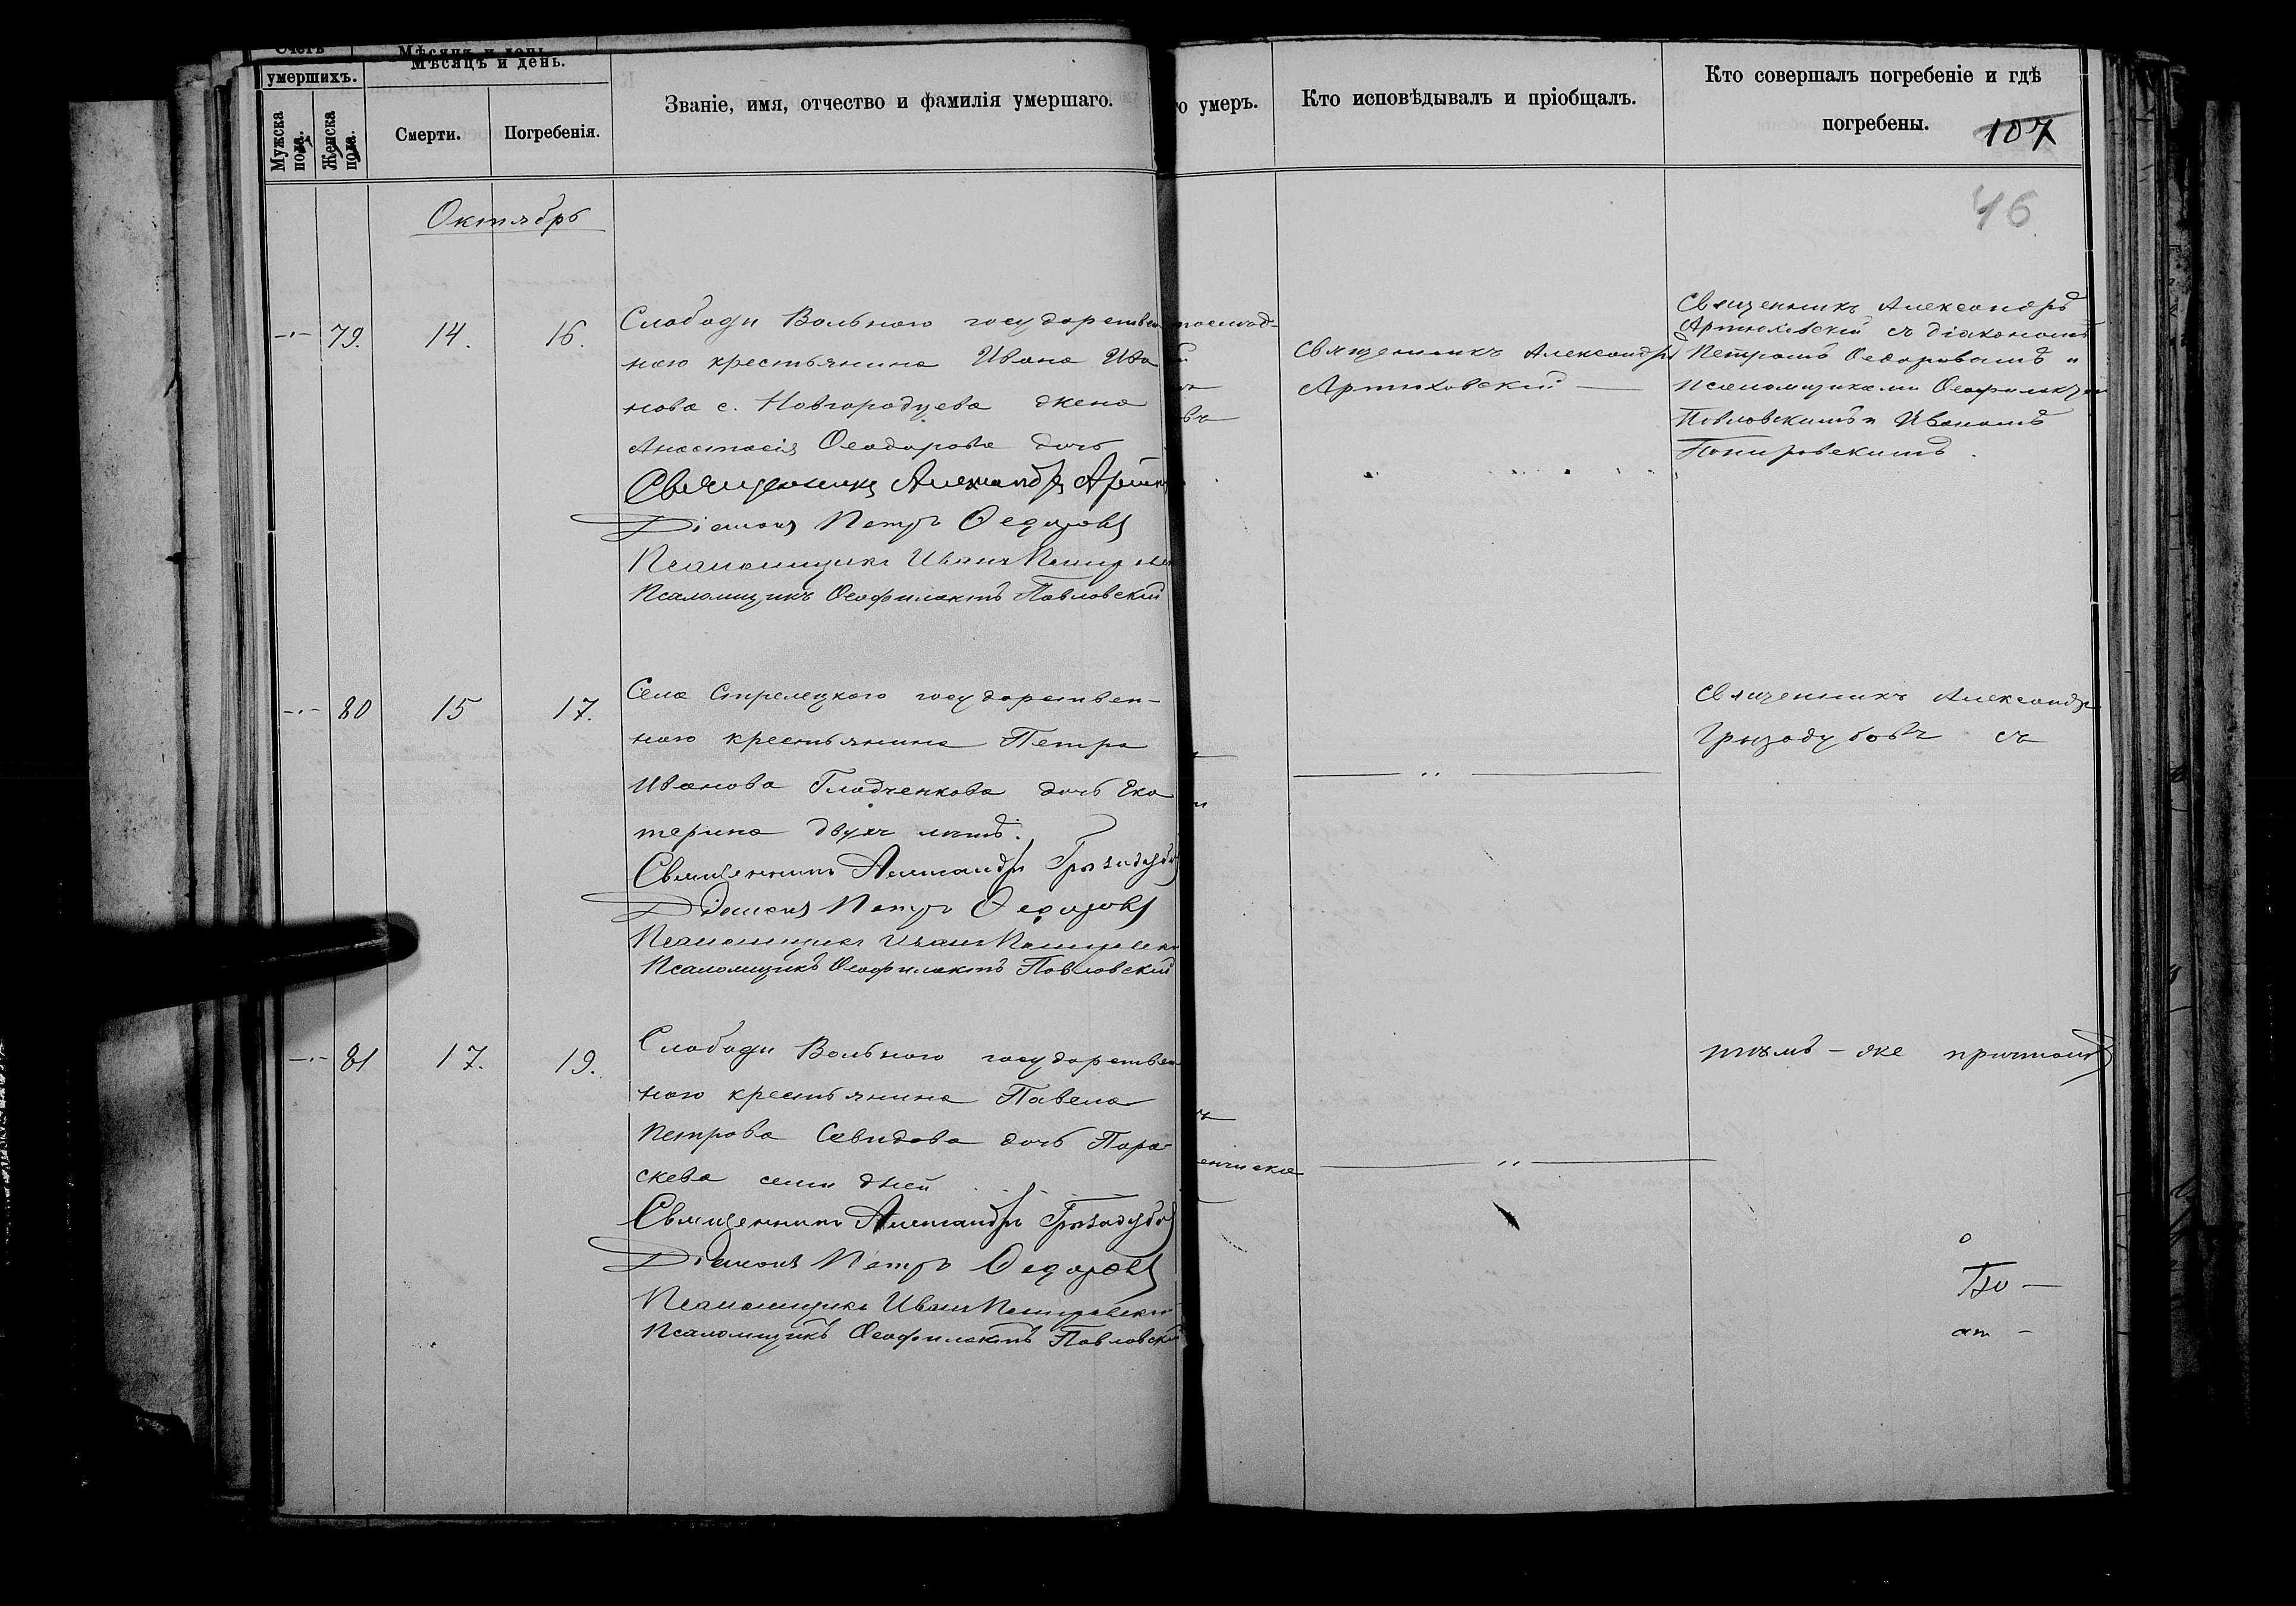 Счетъ
умершихъ.
Мужска пола.
Женска пола.
Мѣсяцъ и день.
Мѣсяцъ и день.
Смерти.
Погребенія.
Званіе, имя, отчество и фамилія умершаго.
о умеръ.
Кто исповѣдывалъ и пріобщалъ.
Кто совершалъ погребеніе и гдѣ
погребены.
107
46
Октябрь
79.
14.
16.
Слободы Вольного государствен
ного крестьянина Ивана Ива
нова с. Новгородцева жена
Анастасія Ѳеодорова дочь
Священникъ Александръ
Діаконъ Петръ Ѳедоровъ
Псаломщикъ Иванъ
Псаломщикъ Ѳеофилактъ Павловскій
въ
Священникъ Александръ
Артюховскій —
Священникъ Александръ
Артюховскій съ діакономъ
Петромъ Ѳедоровымъ и
псаломщиками Ѳеофилактомъ
Павловскимъ и Иваномъ
80
15
17.
Села Стрелецкого государствен-
ного крестьянина Петра
Иванова Гладченкова дочь Ека
терина двухъ лѣтъ.
Священникъ Александръ
Діаконъ Петръ Ѳедоровъ
Псаломщикъ Иванъ
Псаломщикъ Ѳеофилактъ Павловскій
— „ —
Священникъ Александръ
Грызодубовъ съ
81
17.
19.
Слободы Вольного государствен
ного крестьянина Павела
Петрова Севидова дочь Пара
скева семи дней
Священникъ Александръ
Діаконъ Петръ Ѳедоровъ
Псаломщикъ Иванъ
Псаломщикъ Ѳеофилактъ Павловскій
— „ —
тѣмъ-же причтомъ